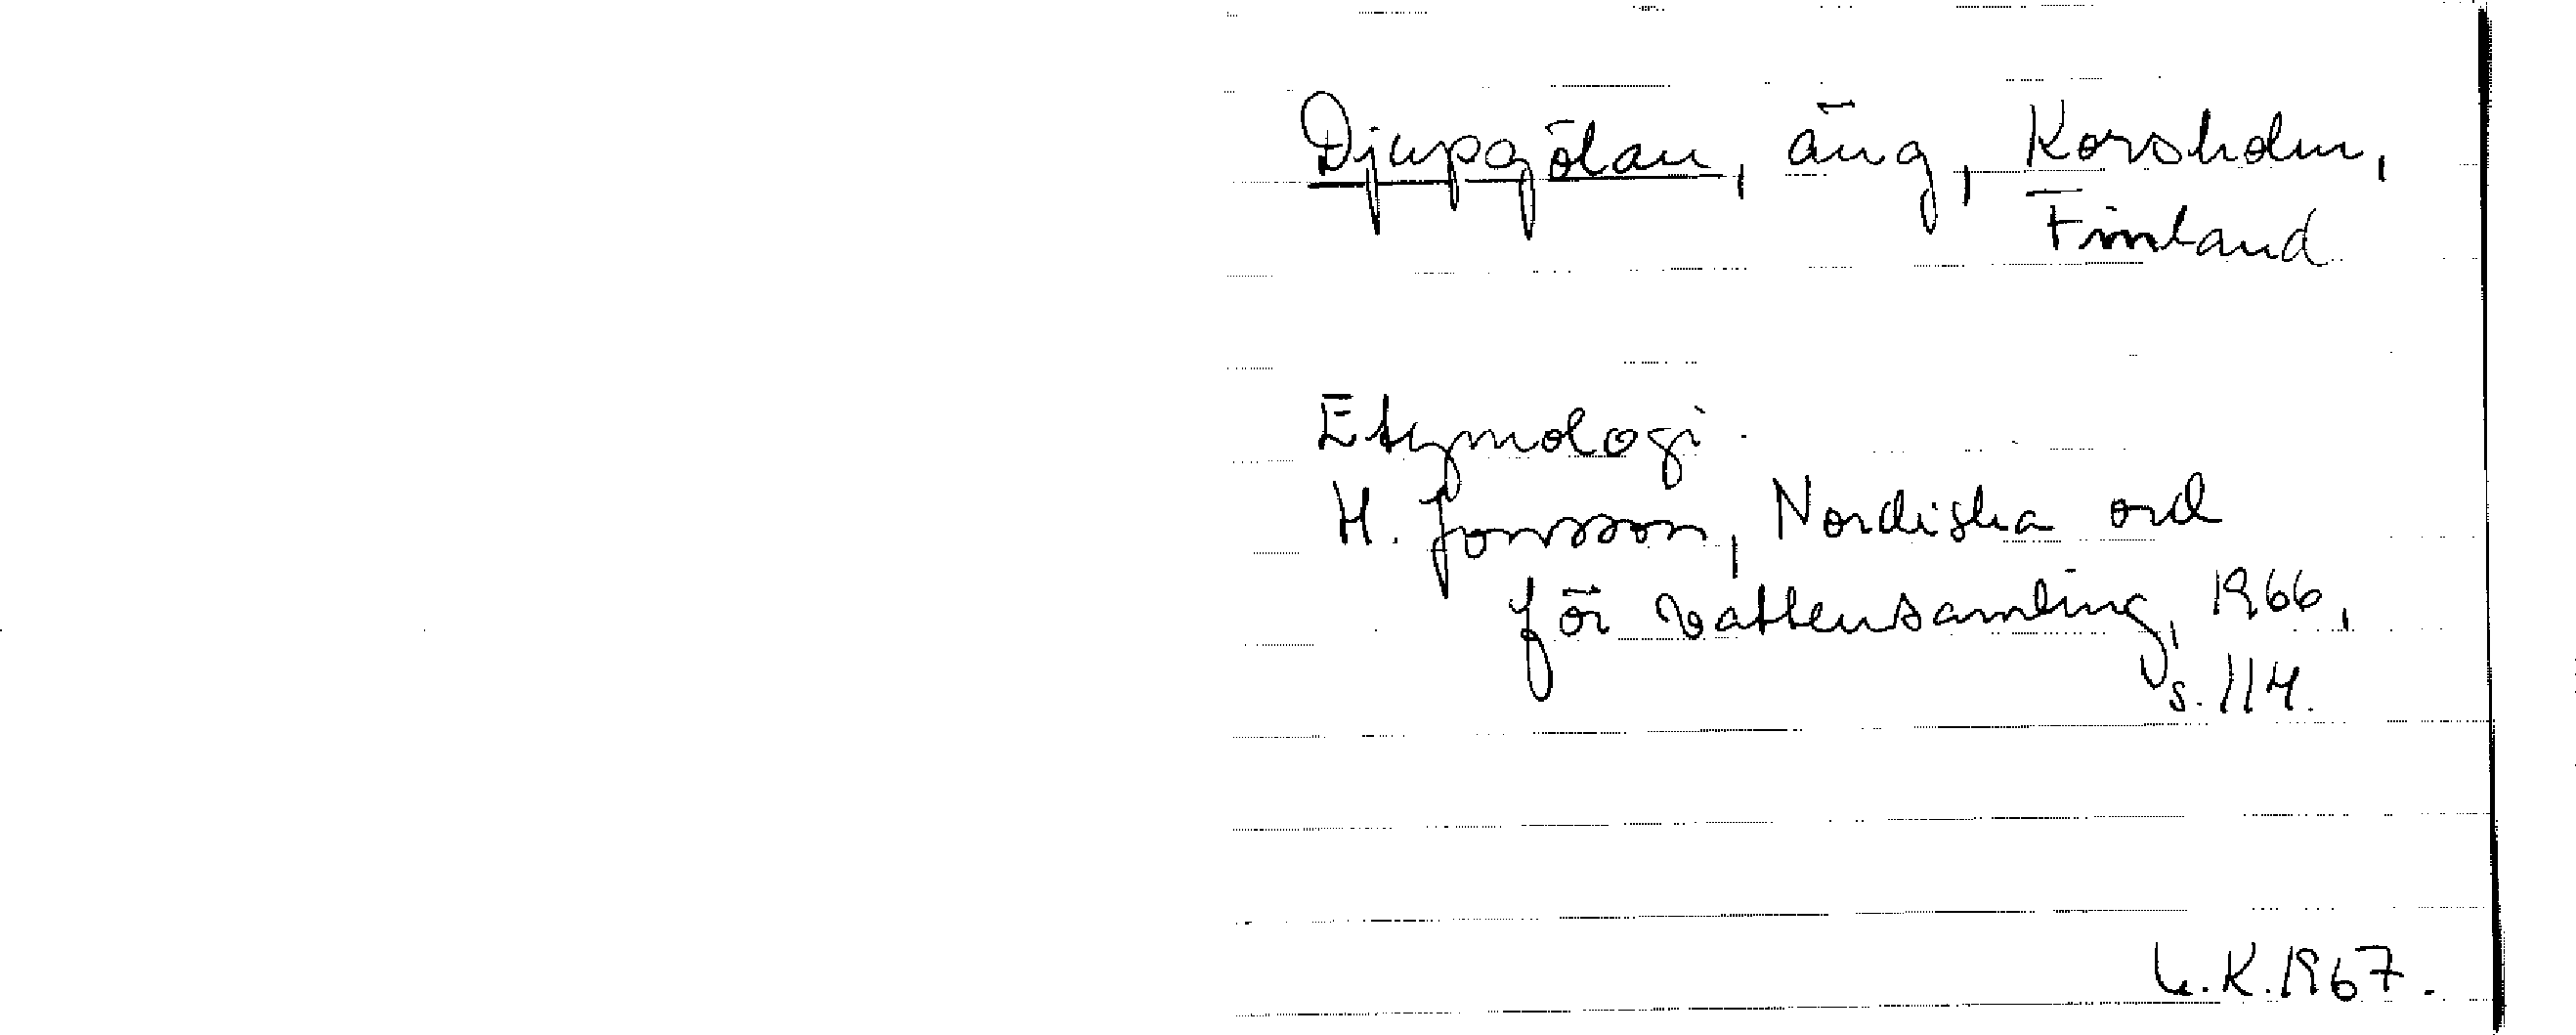 Djupgölan, äng, Korsholm,
Finland
Etymologi.
H. Jonsson, Nordiska ord
för vattensamling, 1966,
s. 114.
K. 1967.